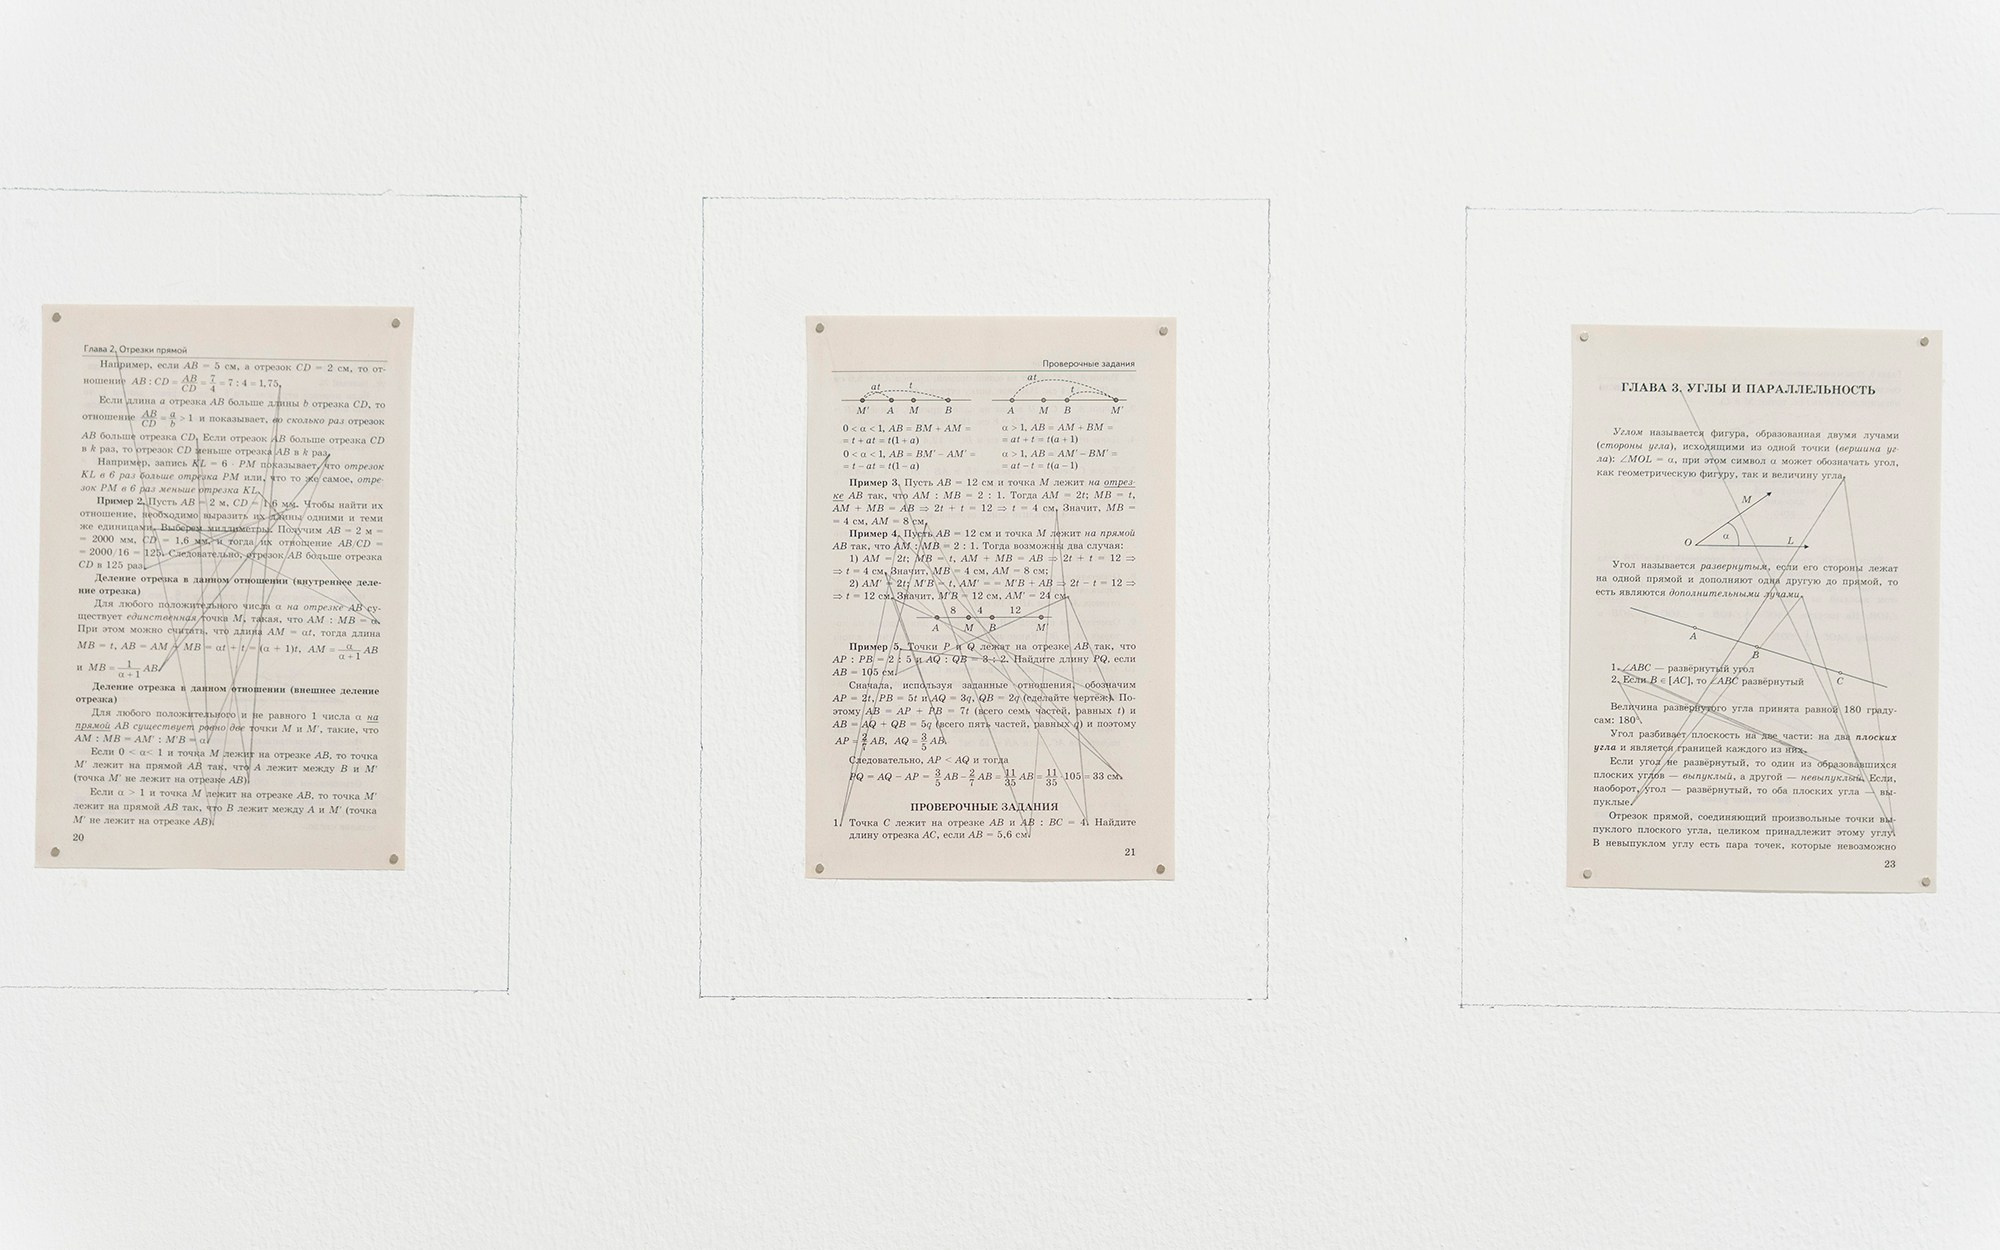 Глава 2. Отрезки прямой
Например, если AB = 5 см, а отрезок CD = 2 см, то от-
ношение AB : CD = AB/CD = 7/4 = 7 : 4 = 1,75.
Если длина a отрезка AB больше длины b отрезка CD, то
отношение AB/CD = a/b > 1 и показывает, во сколько раз отрезок
AB больше отрезка CD. Если отрезок AB больше отрезка CD
в k раз, то отрезок CD меньше отрезка AB в k раз.
Например, запись KL = 6 · PM показывает, что отрезок
KL в 6 раз больше отрезка PM или, что то же самое, отре-
зок PM в 6 раз меньше отрезка KL.
Пример 2. Пусть AB = 2 м, CD = 1,6 мм. Чтобы найти их
отношение, необходимо выразить их длины одними и теми
же единицами. Выберем миллиметры. Получим AB = 2 м =
= 2000 мм, CD = 1,6 мм, и тогда их отношение AB/CD =
= 2000/16 = 125. Следовательно, отрезок AB больше отрезка
CD в 125 раз.
Деление отрезка в данном отношении (внутреннее деле-
ние отрезка)
Для любого положительного числа α на отрезке AB су-
ществует единственная точка M, такая, что AM : MB = α.
При этом можно считать, что длина AM = αt, тогда длина
MB = t, AB = AM + MB = αt + t = (α + 1)t, AM = α/(α+1) AB
и MB = 1/(α+1) AB.
Деление отрезка в данном отношении (внешнее деление
отрезка)
Для любого положительного и не равного 1 числа α на
прямой AB существует ровно две точки M и M′, такие, что
AM : MB = AM′ : M′B = α.
Если 0 < α < 1 и точка M лежит на отрезке AB, то точка
M′ лежит на прямой AB так, что A лежит между B и M′
(точка M′ не лежит на отрезке AB).
Если α > 1 и точка M лежит на отрезке AB, то точка M′
лежит на прямой AB так, что B лежит между A и M′ (точка
M′ не лежит на отрезке AB).
20
Проверочные задания
at t at t
M′ A M B A M B M′
0 < α < 1, AB = BM + AM = α > 1, AB = AM + BM =
= t + at = t(1 + a) = at + t = t(a + 1)
0 < α < 1, AB = BM′ − AM′ = α > 1, AB = AM′ − BM′ =
= t − at = t(1 − a) = at − t = t(a − 1)
Пример 3. Пусть AB = 12 см и точка M лежит на отрез-
ке AB так, что AM : MB = 2 : 1. Тогда AM = 2t; MB = t,
AM + MB = AB ⇒ 2t + t = 12 ⇒ t = 4 см. Значит, MB =
= 4 см, AM = 8 см.
Пример 4. Пусть AB = 12 см и точка M лежит на прямой
AB так, что AM : MB = 2 : 1. Тогда возможны два случая:
1) AM = 2t; MB = t, AM + MB = AB ⇒ 2t + t = 12 ⇒
⇒ t = 4 см. Значит, MB = 4 см, AM = 8 см;
2) AM′ = 2t; M′B = t, AM′ = = M′B + AB ⇒ 2t − t = 12 ⇒
⇒ t = 12 см. Значит, M′B = 12 см, AM′ = 24 см.
8 4 12
A M B M′
Пример 5. Точки P и Q лежат на отрезке AB так, что
AP : PB = 2 : 5 и AQ : QB = 3 : 2. Найдите длину PQ, если
AB = 105 см.
Сначала, используя заданные отношения, обозначим
AP = 2t, PB = 5t и AQ = 3q, QB = 2q (сделайте чертёж). По-
этому AB = AP + PB = 7t (всего семь частей, равных t) и
AB = AQ + QB = 5q (всего пять частей, равных q) и поэтому
AP = 2/7 AB, AQ = 3/5 AB.
Следовательно, AP < AQ и тогда
PQ = AQ − AP = 3/5 AB − 2/7 AB = 11/35 AB = 11/35 · 105 = 33 см.
ПРОВЕРОЧНЫЕ ЗАДАНИЯ
1. Точка C лежит на отрезке AB и AB : BC = 4. Найдите
длину отрезка AC, если AB = 5,6 см.
21
ГЛАВА 3. УГЛЫ И ПАРАЛЛЕЛЬНОСТЬ
Углом называется фигура, образованная двумя лучами
(стороны угла), исходящими из одной точки (вершина уг-
ла): ∠MOL = α, при этом символ α может обозначать угол,
как геометрическую фигуру, так и величину угла.
M
O α L
Угол называется развернутым, если его стороны лежат
на одной прямой и дополняют одна другую до прямой, то
есть являются дополнительными лучами.
A
B
C
1. ∠ABC — развёрнутый угол
2. Если B ∈ [AC], то ∠ABC развёрнутый
Величина развёрнутого угла принята равной 180 граду-
сам: 180°.
Угол разбивает плоскость на две части: на два плоских
угла и является границей каждого из них.
Если угол не развёрнутый, то один из образовавшихся
плоских углов — выпуклый, а другой — невыпуклый. Если,
наоборот, угол — развёрнутый, то оба плоских угла — вы-
пуклые.
Отрезок прямой, соединяющий произвольные точки вы-
пуклого плоского угла, целиком принадлежит этому углу.
В невыпуклом углу есть пара точек, которые невозможно
23